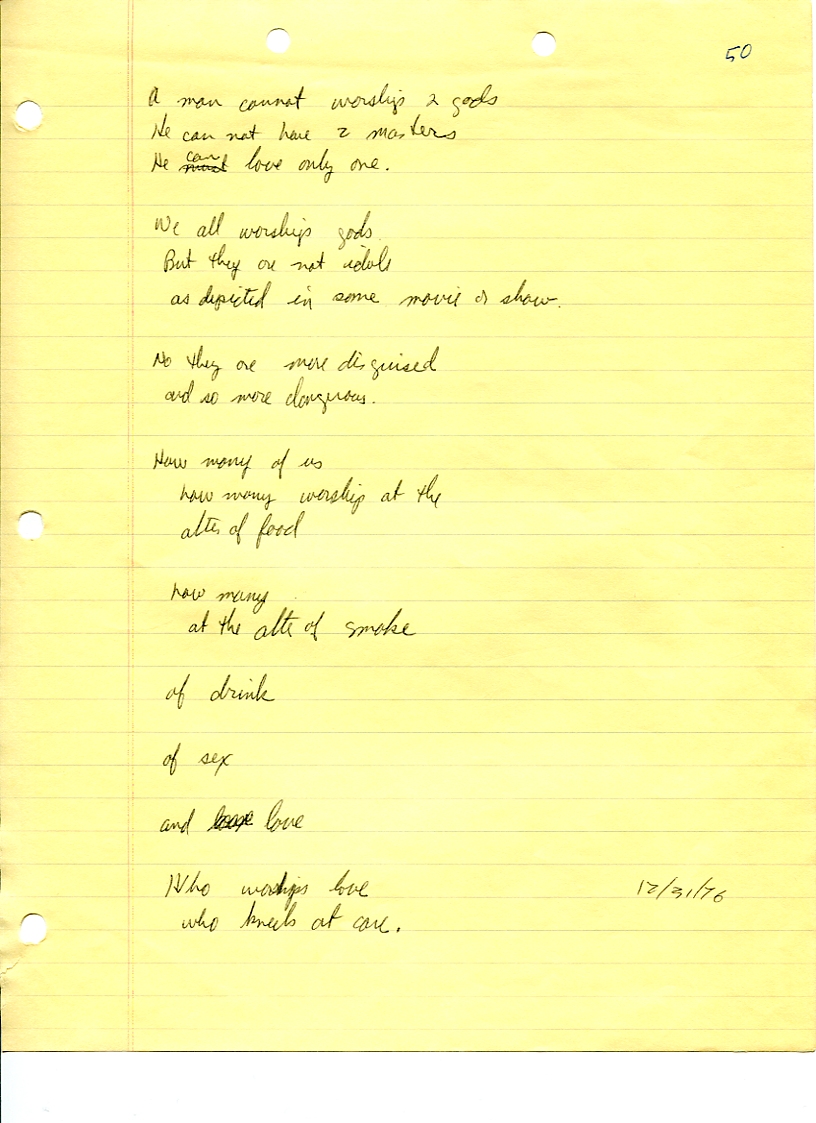 50
A man cannot worship 2 gods
He can not have 2 masters
He can love only one.
We all worship gods.
But they are not idols
as depicted in some movie or show.
No they are more disguised
and so more dangerous.
How many of us
how many worship at the
alter of food
how many
at the alter of smoke
of drink
of sex
and love
Who worships love
who kneels at care.
12/31/76